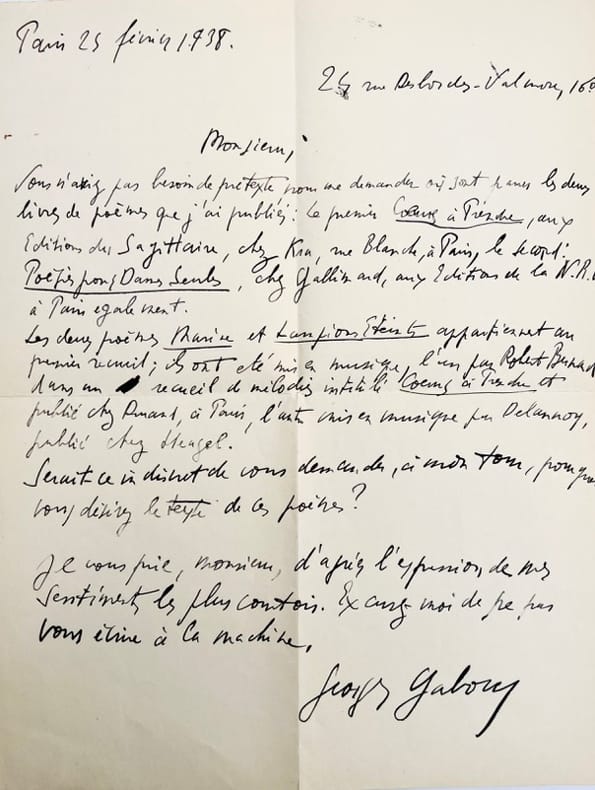 Paris 25 février 1938.
24 rue Desbordes-Valmore, 16e
Monsieur,
Vous n'aviez pas besoin de prétexte pour me demander où sont parus les deux
livres de poèmes que j'ai publiés: le premier Coeurs à Prendre, aux
Editions du Sagittaire, chez Kra, rue Blanche, à Paris, le second:
Poésies pour Dames Seules, chez Gallimard, aux Editions de la N.R.F
à Paris également.
Les deux poèmes Marine et Lampions Eteints appartiennent au
premier recueil; ils ont été mis en musique, l'un par Robert Bernard
dans un recueil de mélodies intitulé Coeurs à Prendre et
publié chez Durand, à Paris, l'autre mis en musique par Delannoy,
publié chez Heugel.
Serait-ce indiscret de vous demander, à mon tour, pourquoi
vous désirez le texte de ces poèmes?
Je vous prie, monsieur, d'agréer l'expression de mes
sentiments les plus courtois. Excusez-moi de ne pas
vous écrire à la machine.
Georges Gabory